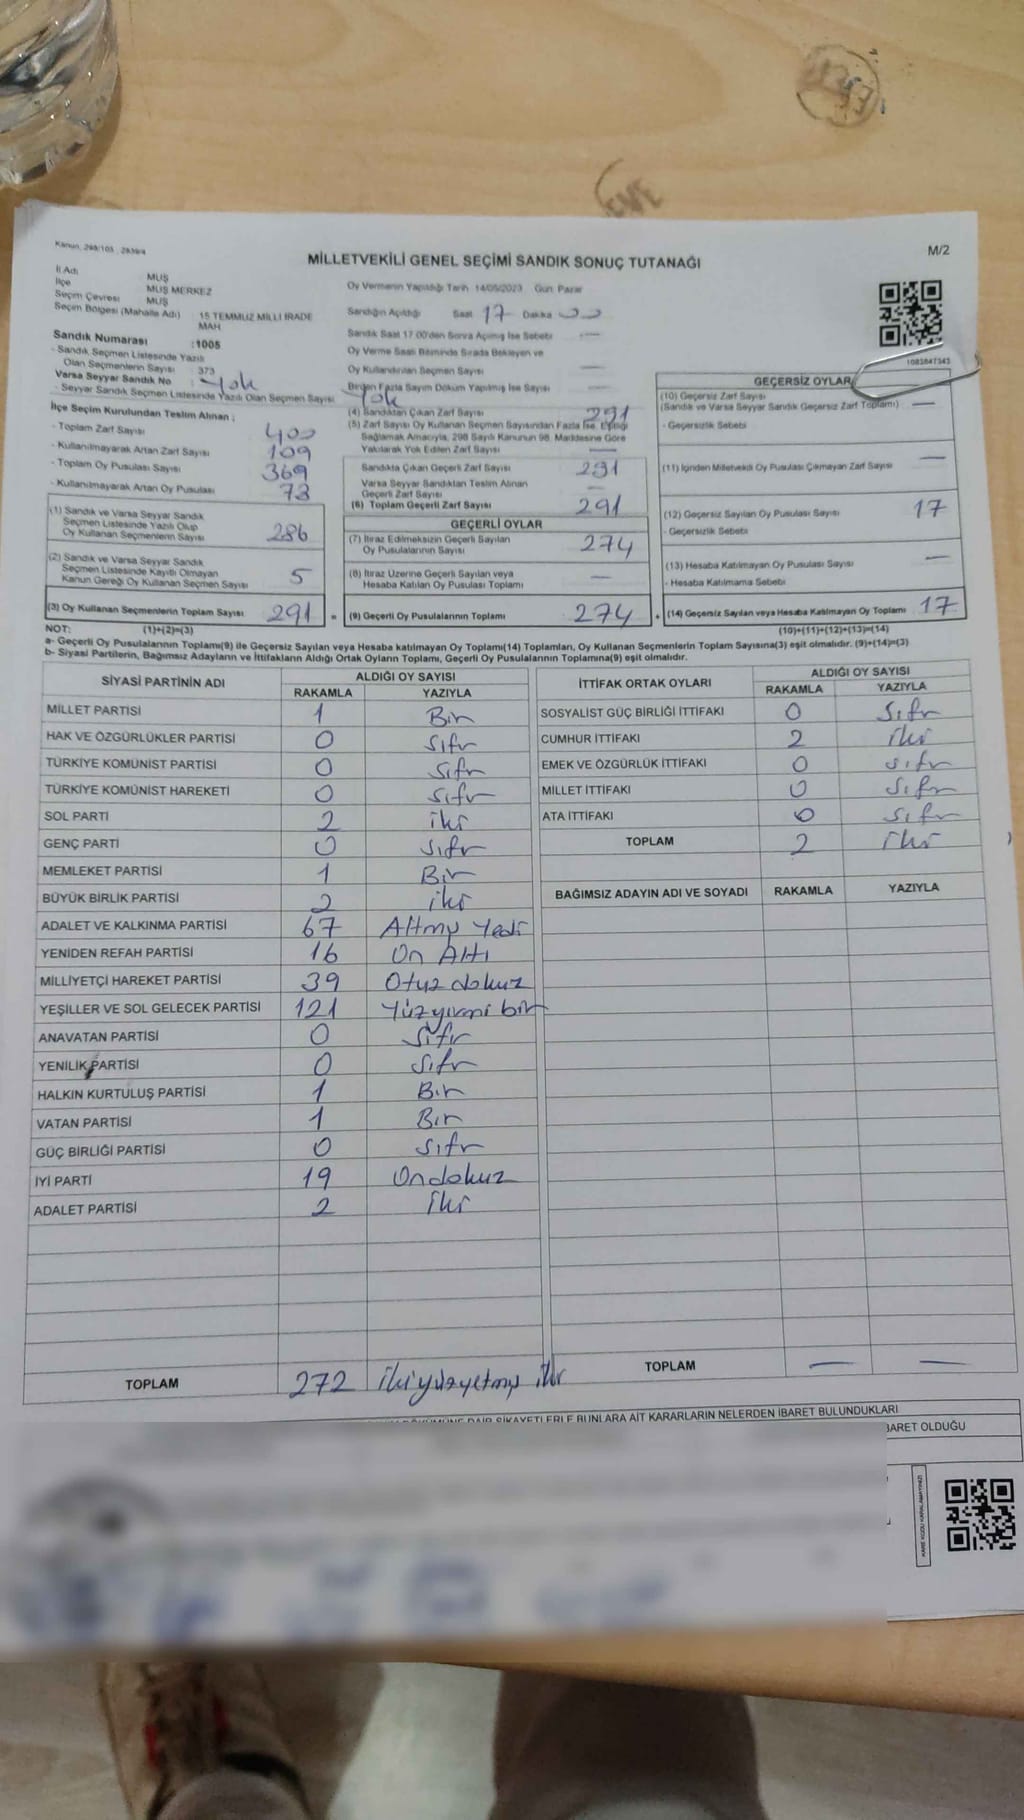 Kanun, 298/103 , 2839/4
M/2
MİLLETVEKİLİ GENEL SEÇİMİ SANDIK SONUÇ TUTANAĞI
İl Adı MUŞ
İlçe MUŞ MERKEZ
Seçim Çevresi MUŞ
Seçim Bölgesi (Mahalle Adı) 15 TEMMUZ MİLLİ İRADE MAH
Sandık Numarası :1005
- Sandık Seçmen Listesinde Yazılı
Olan Seçmenlerin Sayısı : 373
Varsa Seyyar Sandık No : Yok
- Seyyar Sandık Seçmen Listesinde Yazılı Olan Seçmen Sayısı
İlçe Seçim Kurulundan Teslim Alınan ;
- Toplam Zarf Sayısı 400
- Kullanılmayarak Artan Zarf Sayısı 109
- Toplam Oy Pusulası Sayısı 369
- Kullanılmayarak Artan Oy Pusulası 73
(1) Sandık ve Varsa Seyyar Sandık
Seçmen Listesinde Yazılı Olup
Oy Kullanan Seçmenlerin Sayısı 286
(2) Sandık ve Varsa Seyyar Sandık
Seçmen Listesinde Kayıtlı Olmayan
Kanun Gereği Oy Kullanan Seçmen Sayısı 5
(3) Oy Kullanan Seçmenlerin Toplam Sayısı 291 =
Oy Vermenin Yapıldığı Tarih 14/05/2023 Gün Pazar
Sandığın Açıldığı Saat 17 Dakika 00
Sandık Saat 17:00'den Sonra Açılmış İse Sebebi —
Oy Verme Saati Bitiminde Sırada Bekleyen ve
Oy Kullandırılan Seçmen Sayısı —
Birden Fazla Sayım Döküm Yapılmış İse Sayısı Yok
(4) Sandıktan Çıkan Zarf Sayısı 291
(5) Zarf Sayısı Oy Kullanan Seçmen Sayısından Fazla İse, Eşitliği
Sağlamak Amacıyla, 298 Sayılı Kanunun 98. Maddesine Göre
Yakılarak Yok Edilen Zarf Sayısı —
Sandıkta Çıkan Geçerli Zarf Sayısı 291
Varsa Seyyar Sandıktan Teslim Alınan
Geçerli Zarf Sayısı —
(6) Toplam Geçerli Zarf Sayısı 291
GEÇERLİ OYLAR
(7) İtiraz Edilmeksizin Geçerli Sayılan
Oy Pusulalarının Sayısı 274
(8) İtiraz Üzerine Geçerli Sayılan veya
Hesaba Katılan Oy Pusulası Toplamı —
(9) Geçerli Oy Pusulalarının Toplamı 274 +
1083847343
GEÇERSİZ OYLAR
(10) Geçersiz Zarf Sayısı
(Sandık ve Varsa Seyyar Sandık Geçersiz Zarf Toplamı) —
- Geçersizlik Sebebi
(11) İçinden Milletvekili Oy Pusulası Çıkmayan Zarf Sayısı —
(12) Geçersiz Sayılan Oy Pusulası Sayısı 17
- Geçersizlik Sebebi
(13) Hesaba Katılmayan Oy Pusulası Sayısı —
- Hesaba Katılmama Sebebi
(14) Geçersiz Sayılan veya Hesaba Katılmayan Oy Toplamı 17
NOT: (1)+(2)=(3) (10)+(11)+(12)+(13)=(14)
a- Geçerli Oy Pusulalarının Toplamı(9) ile Geçersiz Sayılan veya Hesaba katılmayan Oy Toplamı(14) Toplamları, Oy Kullanan Seçmenlerin Toplam Sayısına(3) eşit olmalıdır. (9)+(14)=(3)
b- Siyasi Partilerin, Bağımsız Adayların ve İttifakların Aldığı Ortak Oyların Toplamı, Geçerli Oy Pusulalarının Toplamına(9) eşit olmalıdır.
SİYASİ PARTİNİN ADI ALDIĞI OY SAYISI
RAKAMLA YAZIYLA
MİLLET PARTİSİ 1 Bir
HAK VE ÖZGÜRLÜKLER PARTİSİ 0 Sıfır
TÜRKİYE KOMÜNİST PARTİSİ 0 Sıfır
TÜRKİYE KOMÜNİST HAREKETİ 0 Sıfır
SOL PARTİ 2 iki
GENÇ PARTİ 0 Sıfır
MEMLEKET PARTİSİ 1 Bir
BÜYÜK BİRLİK PARTİSİ 2 iki
ADALET VE KALKINMA PARTİSİ 67 Altmış Yedi
YENİDEN REFAH PARTİSİ 16 On Altı
MİLLİYETÇİ HAREKET PARTİSİ 39 Otuz dokuz
YEŞİLLER VE SOL GELECEK PARTİSİ 121 Yüzyirmi bir
ANAVATAN PARTİSİ 0 Sıfır
YENİLİK PARTİSİ 0 Sıfır
HALKIN KURTULUŞ PARTİSİ 1 Bir
VATAN PARTİSİ 1 Bir
GÜÇ BİRLİĞİ PARTİSİ 0 Sıfır
İYİ PARTİ 19 Ondokuz
ADALET PARTİSİ 2 iki
TOPLAM 272 ikiyüzyetmiş iki
İTTİFAK ORTAK OYLARI ALDIĞI OY SAYISI
RAKAMLA YAZIYLA
SOSYALİST GÜÇ BİRLİĞİ İTTİFAKI 0 Sıfır
CUMHUR İTTİFAKI 2 iki
EMEK VE ÖZGÜRLÜK İTTİFAKI 0 Sıfır
MİLLET İTTİFAKI 0 Sıfır
ATA İTTİFAKI 0 Sıfır
TOPLAM 2 iki
BAĞIMSIZ ADAYIN ADI VE SOYADI RAKAMLA YAZIYLA
TOPLAM — —
ŞİKAYETLERLE BUNLARA AİT KARARLARIN NELERDEN İBARET BULUNDUKLARI
İBARET OLDUĞU
KARE KODU KARALAMAYINIZ